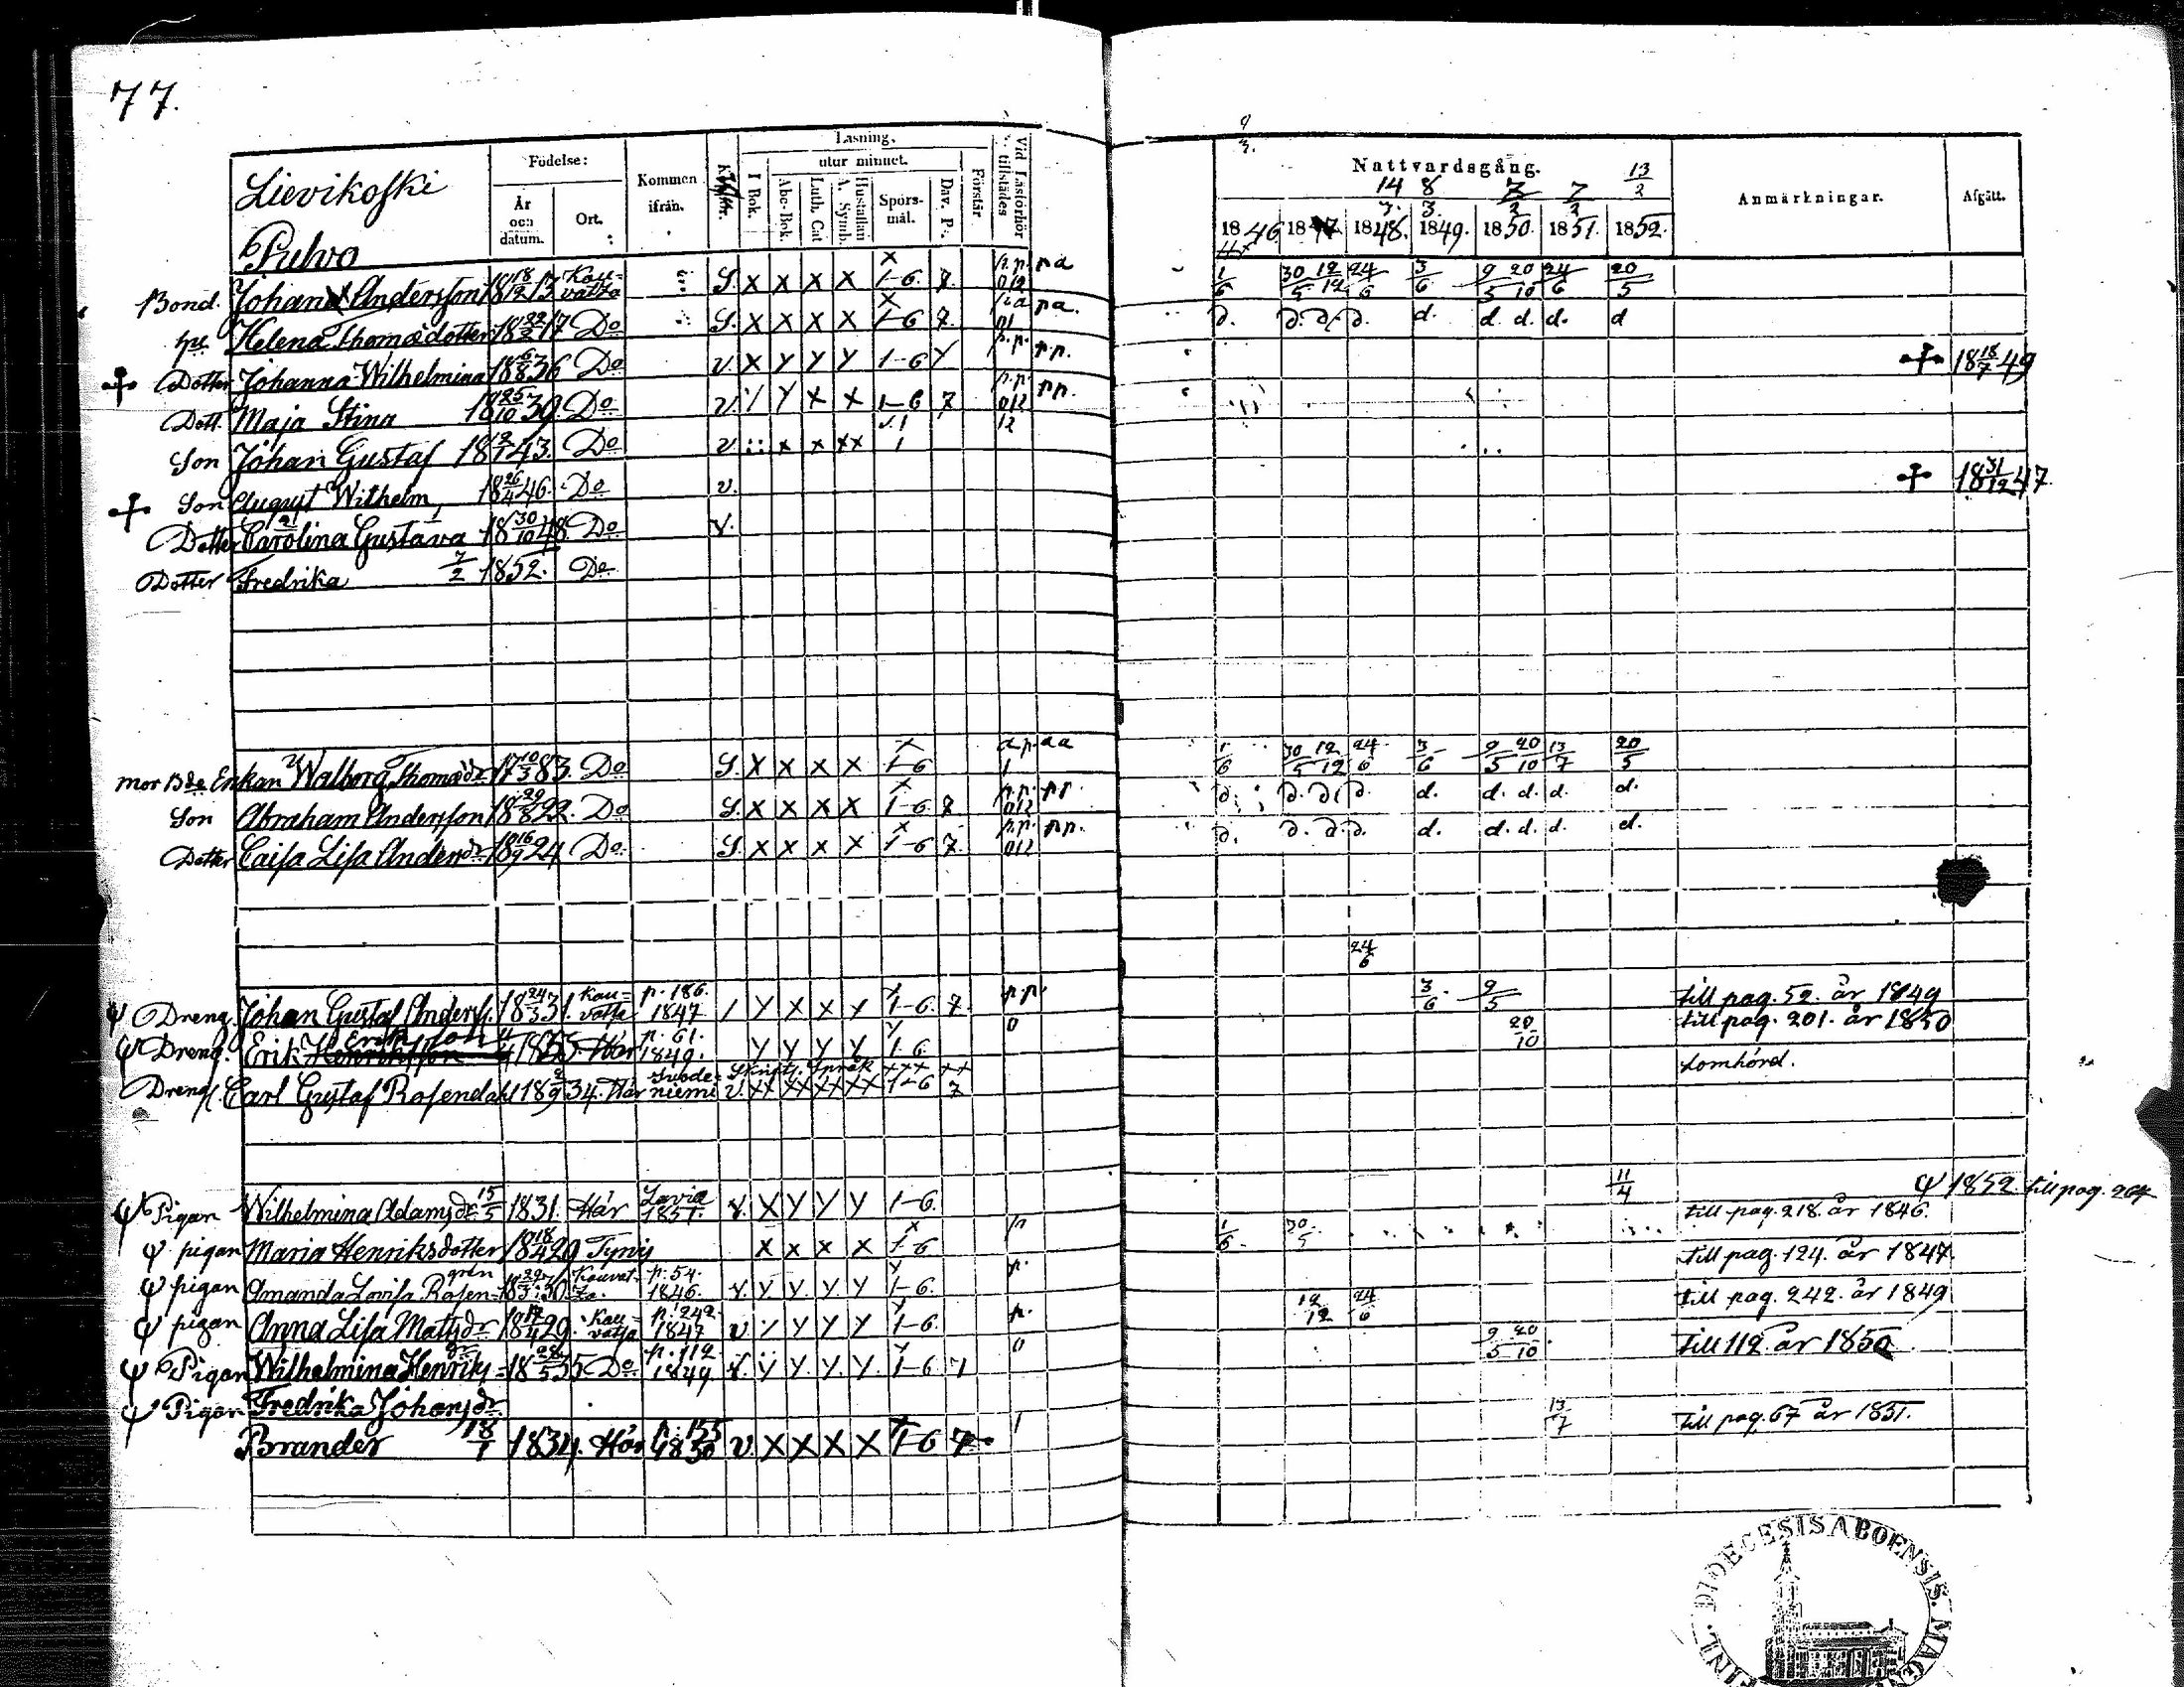 77.
Lievikoski
Pulvo
Födelse:
År och datum.
Ort.
Kommen ifrån.
Läsning.
I Bok.
utur minnet.
Abc-Bok.
Luth. Cat
A. Symb.
Hustaflan
Spörsmål.
Dav. P.
Förstår
Vid Läsförhör tillstädes
Nattvardsgång.
14/3. 8/3. 7/2 7/2 13/2
1846 1847 1848. 1849. 1850. 1851. 1852.
Anmärkningar.
Afgått.
Bond. Johan Andersson 18 18/12 13 Kauvatsa S. X X X X 1-6 7. 1/6 30/5 12/12 24/6 3/6 9/5 20/10 24/6 20/5
hu Helena Thomædotter 18 22/2 17 Do S. X X X X 1-6 7. d. d. d. d. d. d. d. d. d
Dotter Johanna Wilhelmina 18 6/8 36 Do v. X Y Y Y 1-6 Y p.p. 18 18/7 49
Dott. Maja Stina 18 25/10 39 Do v. Y X X 1-6 7 p.p.
Son Johan Gustaf 18 43. Do v. x x xx 1
Son August Wilhelm, 18 26/4 46. Do v. 18 31/12 47
Dotter Carolina Gustava 18 30/10 48 Do v.
Dotter Fredrika 7/2 1852. Do
mor Bde Enkan Walborg Thomædr 17 10/3 83. Do S. X X X X 1-6 1/6 30/5 12/12 24/6 3/6 9/5 20/10 13/7 20/5
Son Abraham Andersson 18 29/8 22. Do S. X X X X 1-6 7 p.p. d. d. d. d. d. d. d. d. d.
Dotter Caisa Lisa Andersdr 18 16/9 24 Do S. X X X X 1-6 7. p.p. d. d. d. d. d. d. d. d. d.
24/6
Dreng. Johan Gustaf Anders. 18 24/3 31. Kauvatsa p. 186. 1847 Y X X Y 1-6. 7. p.p. 3/6 9/5 till pag. 52. år 1849
Dreng. Erik Henriksson Erik Joh. 1835. Här p. 61. 1849. Y Y Y Y 1-6. 0 20/10 till pag. 201. år 1850
Dreng. Carl Gustaf Rosendahl 18 2/9 34. Här niemi v. xx xx xx xx 1-6 7 Lomhörd.
Pigan Wilhelmina Adamsdr 15/5 1831. Här Lavia 1851. v. X Y Y Y 1-6. 11/4 1852 till pag. 264
pigan Maria Henriksdotter 18 18/4 29 Tyrvis X X X X 1-6 p 1/6. 30/5 till pag. 218. år 1846.
pigan Amanda Lovisa Rosengrén 30 Kauvatsa. p. 54. 1846. v. Y Y. Y. Y 1-6. p. till pag. 124. år 1847.
pigan Anna Lisa Matsdr 18 /4 29. Kauvatsa p. 242. 1847 v Y Y Y 1-6. p. 12/12 24/6 till pag. 242. år 1849
Pigan Wilhelmina Henriksdr 18 28/5 35 Do p. 112 1849 v. Y Y. Y. Y. 1-6 7 0 9/5 20/10 till 112 år 1850
Pigan Fredrika Johansdr
Brander 18/1 1834. Här p. 155 1850 v. X X X X 1-6 7 1 13/7 till pag. 67 år 1851.
DIOECESIS ABOENSIS. MAG FINL.